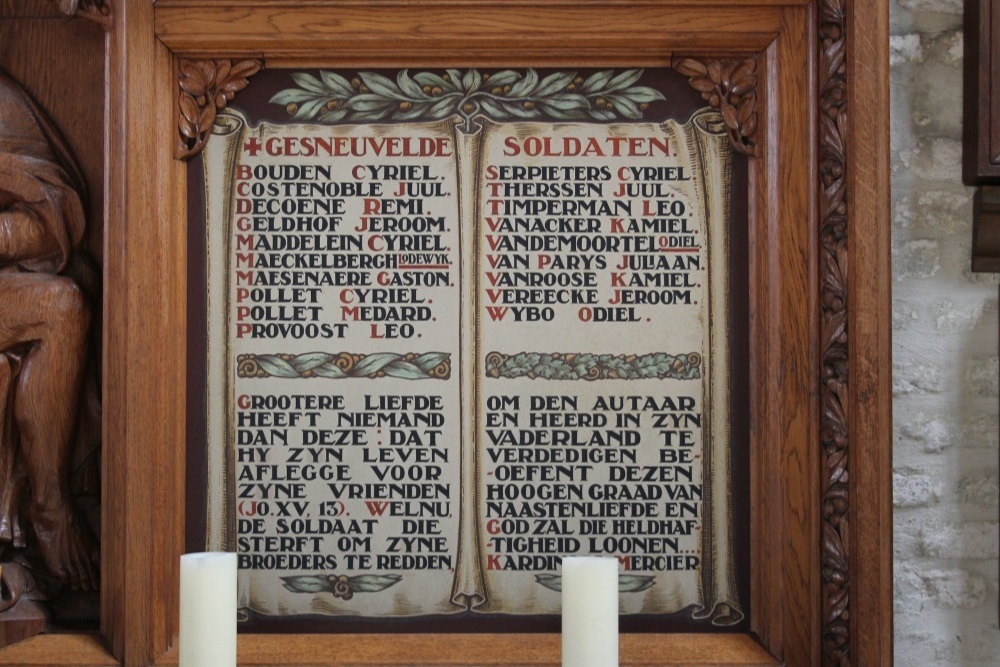 ✚GESNEUVELDE
BOUDEN CYRIEL.
COSTENOBLE JUUL.
DECOENE REMI.
GELDHOF JEROOM.
MADDELEIN CYRIEL.
MAECKELBERGH LODEWYK.
MAESENAERE GASTON.
POLLET CYRIEL.
POLLET MEDARD.
PROVOOST LEO.
GROOTERE LIEFDE
HEEFT NIEMAND
DAN DEZE : DAT
HY ZYN LEVEN
AFLEGGE VOOR
ZYNE VRIENDEN
(JO.XV, 13). WELNU,
DE SOLDAAT DIE
STERFT OM ZYNE
BROEDERS TE REDDEN,
SOLDATEN.
SERPIETERS CYRIEL.
THERSSEN JUUL.
TIMPERMAN LEO.
VANACKER KAMIEL.
VANDEMOORTEL ODIEL.
VAN PARYS JULIAAN.
VANROOSE KAMIEL.
VEREECKE JEROOM.
WYBO ODIEL.
OM DEN AUTAAR
EN HEERD IN ZYN
VADERLAND TE
VERDEDIGEN BE-
-OEFENT DEZEN
HOOGEN GRAAD VAN
NAASTENLIEFDE EN
GOD ZAL DIE HELDHAF-
-TIGHEID LOONEN....
MERCIER